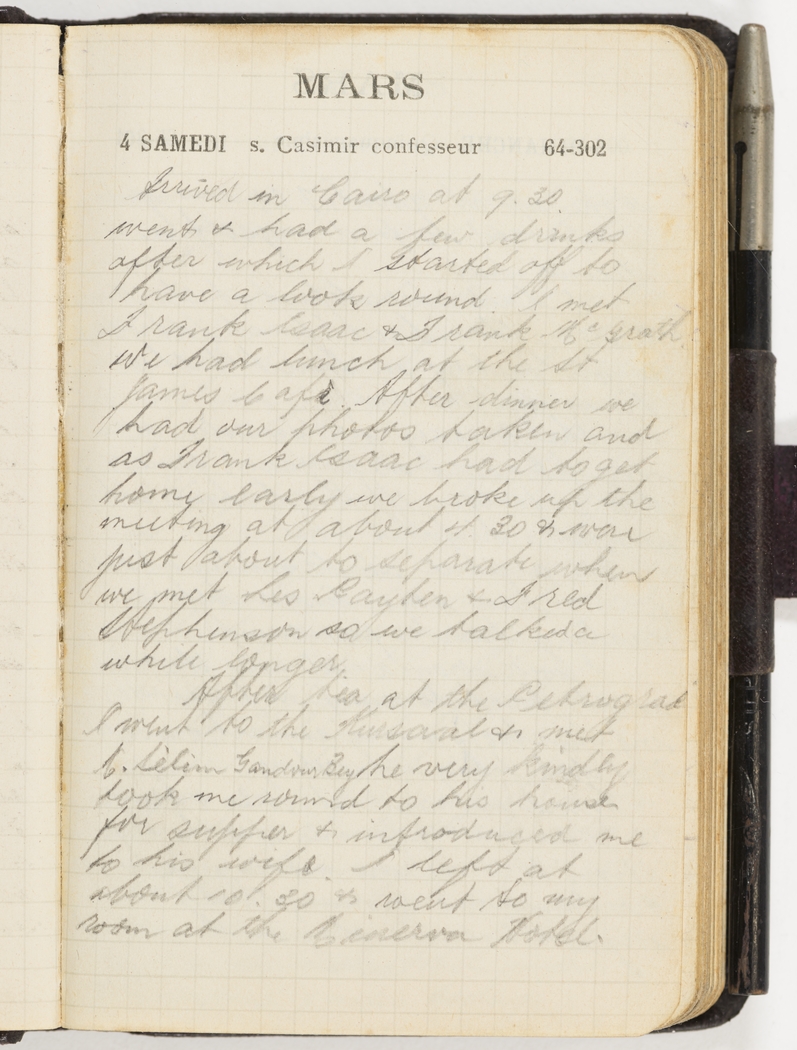 MARS
4 SAMEDI s. Casimir confesseur 64-302
Arrived in Cairo at 9.30
went & had a few drinks
after which I started off to
have a look round. I met
Frank Isaac & Frank Mc grath
we had lunch at the St
James Café. After dinner we
had our photos taken and
as Frank Isaac had to get
home early we broke up the
meeting at about 4.30 & were
just about to separate when
we met Les & Fred
Stephenson so we talked a
while longer.
After tea at the Petrograd
I went to the Kursaal & met
M. Sélim Gandour Bey he very kindly
took me round to his house
for supper & introduced me
to his wife. I left at
about 10.30 & went to my
room at the Minerva Hotel.